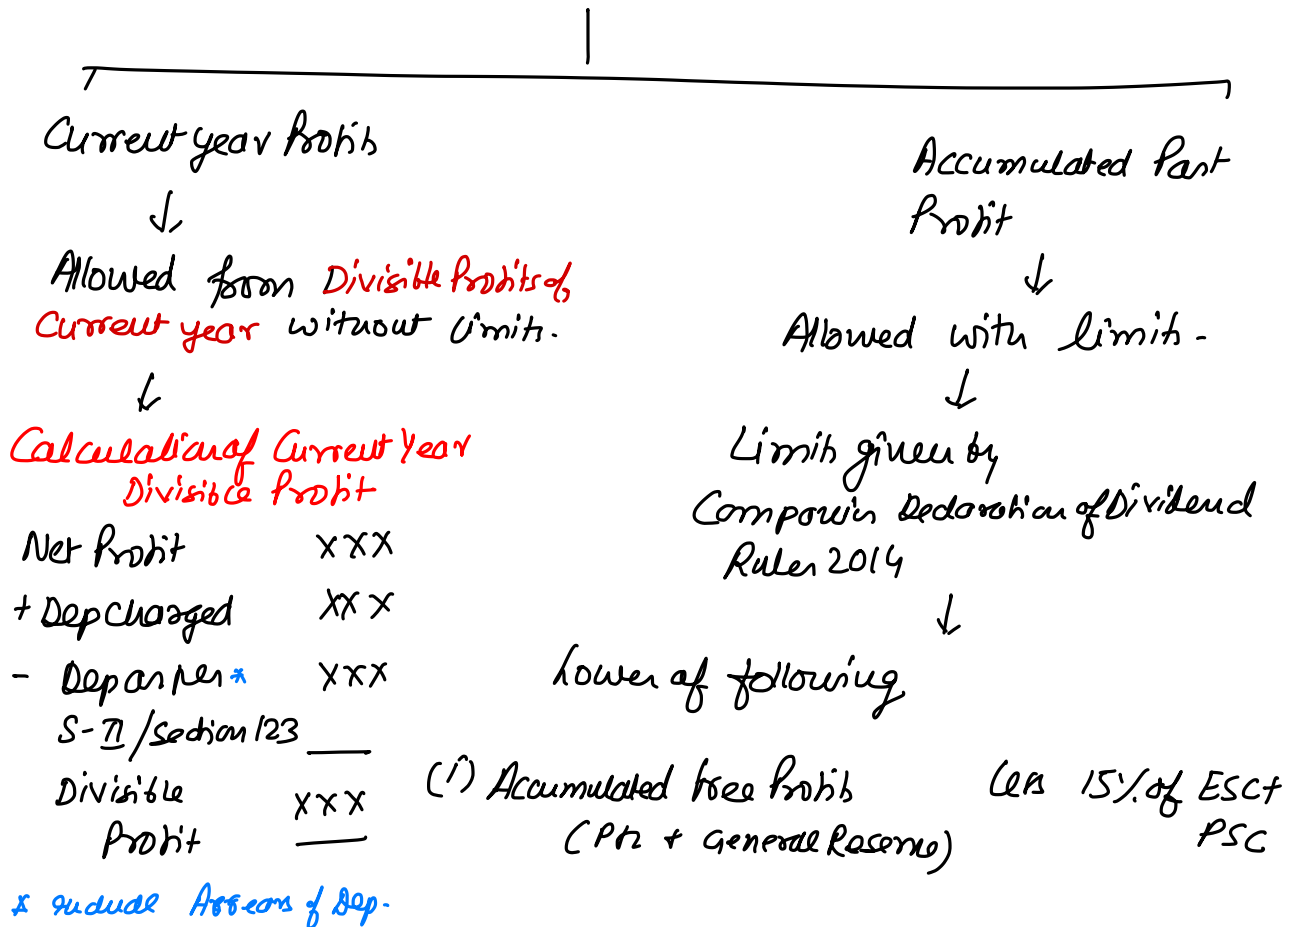 Current year Profits
Allowed from Divisible Profits of
Current year without limits.
Calculation of Current Year
Divisible Profit
Net Profit XXX
+ Dep Charged XXX
- Dep as per * XXX
S-II/Section 123
Divisible
Profit XXX
* Include Arrears of Dep.
Accumulated Past
Profit
Allowed with limits -
Limits given by
Companies Declaration of Dividend
Rules 2014
Lower of following
(i) Accumulated free Profits Less 15% of ESC+
(P&L + General Reserve) PSC